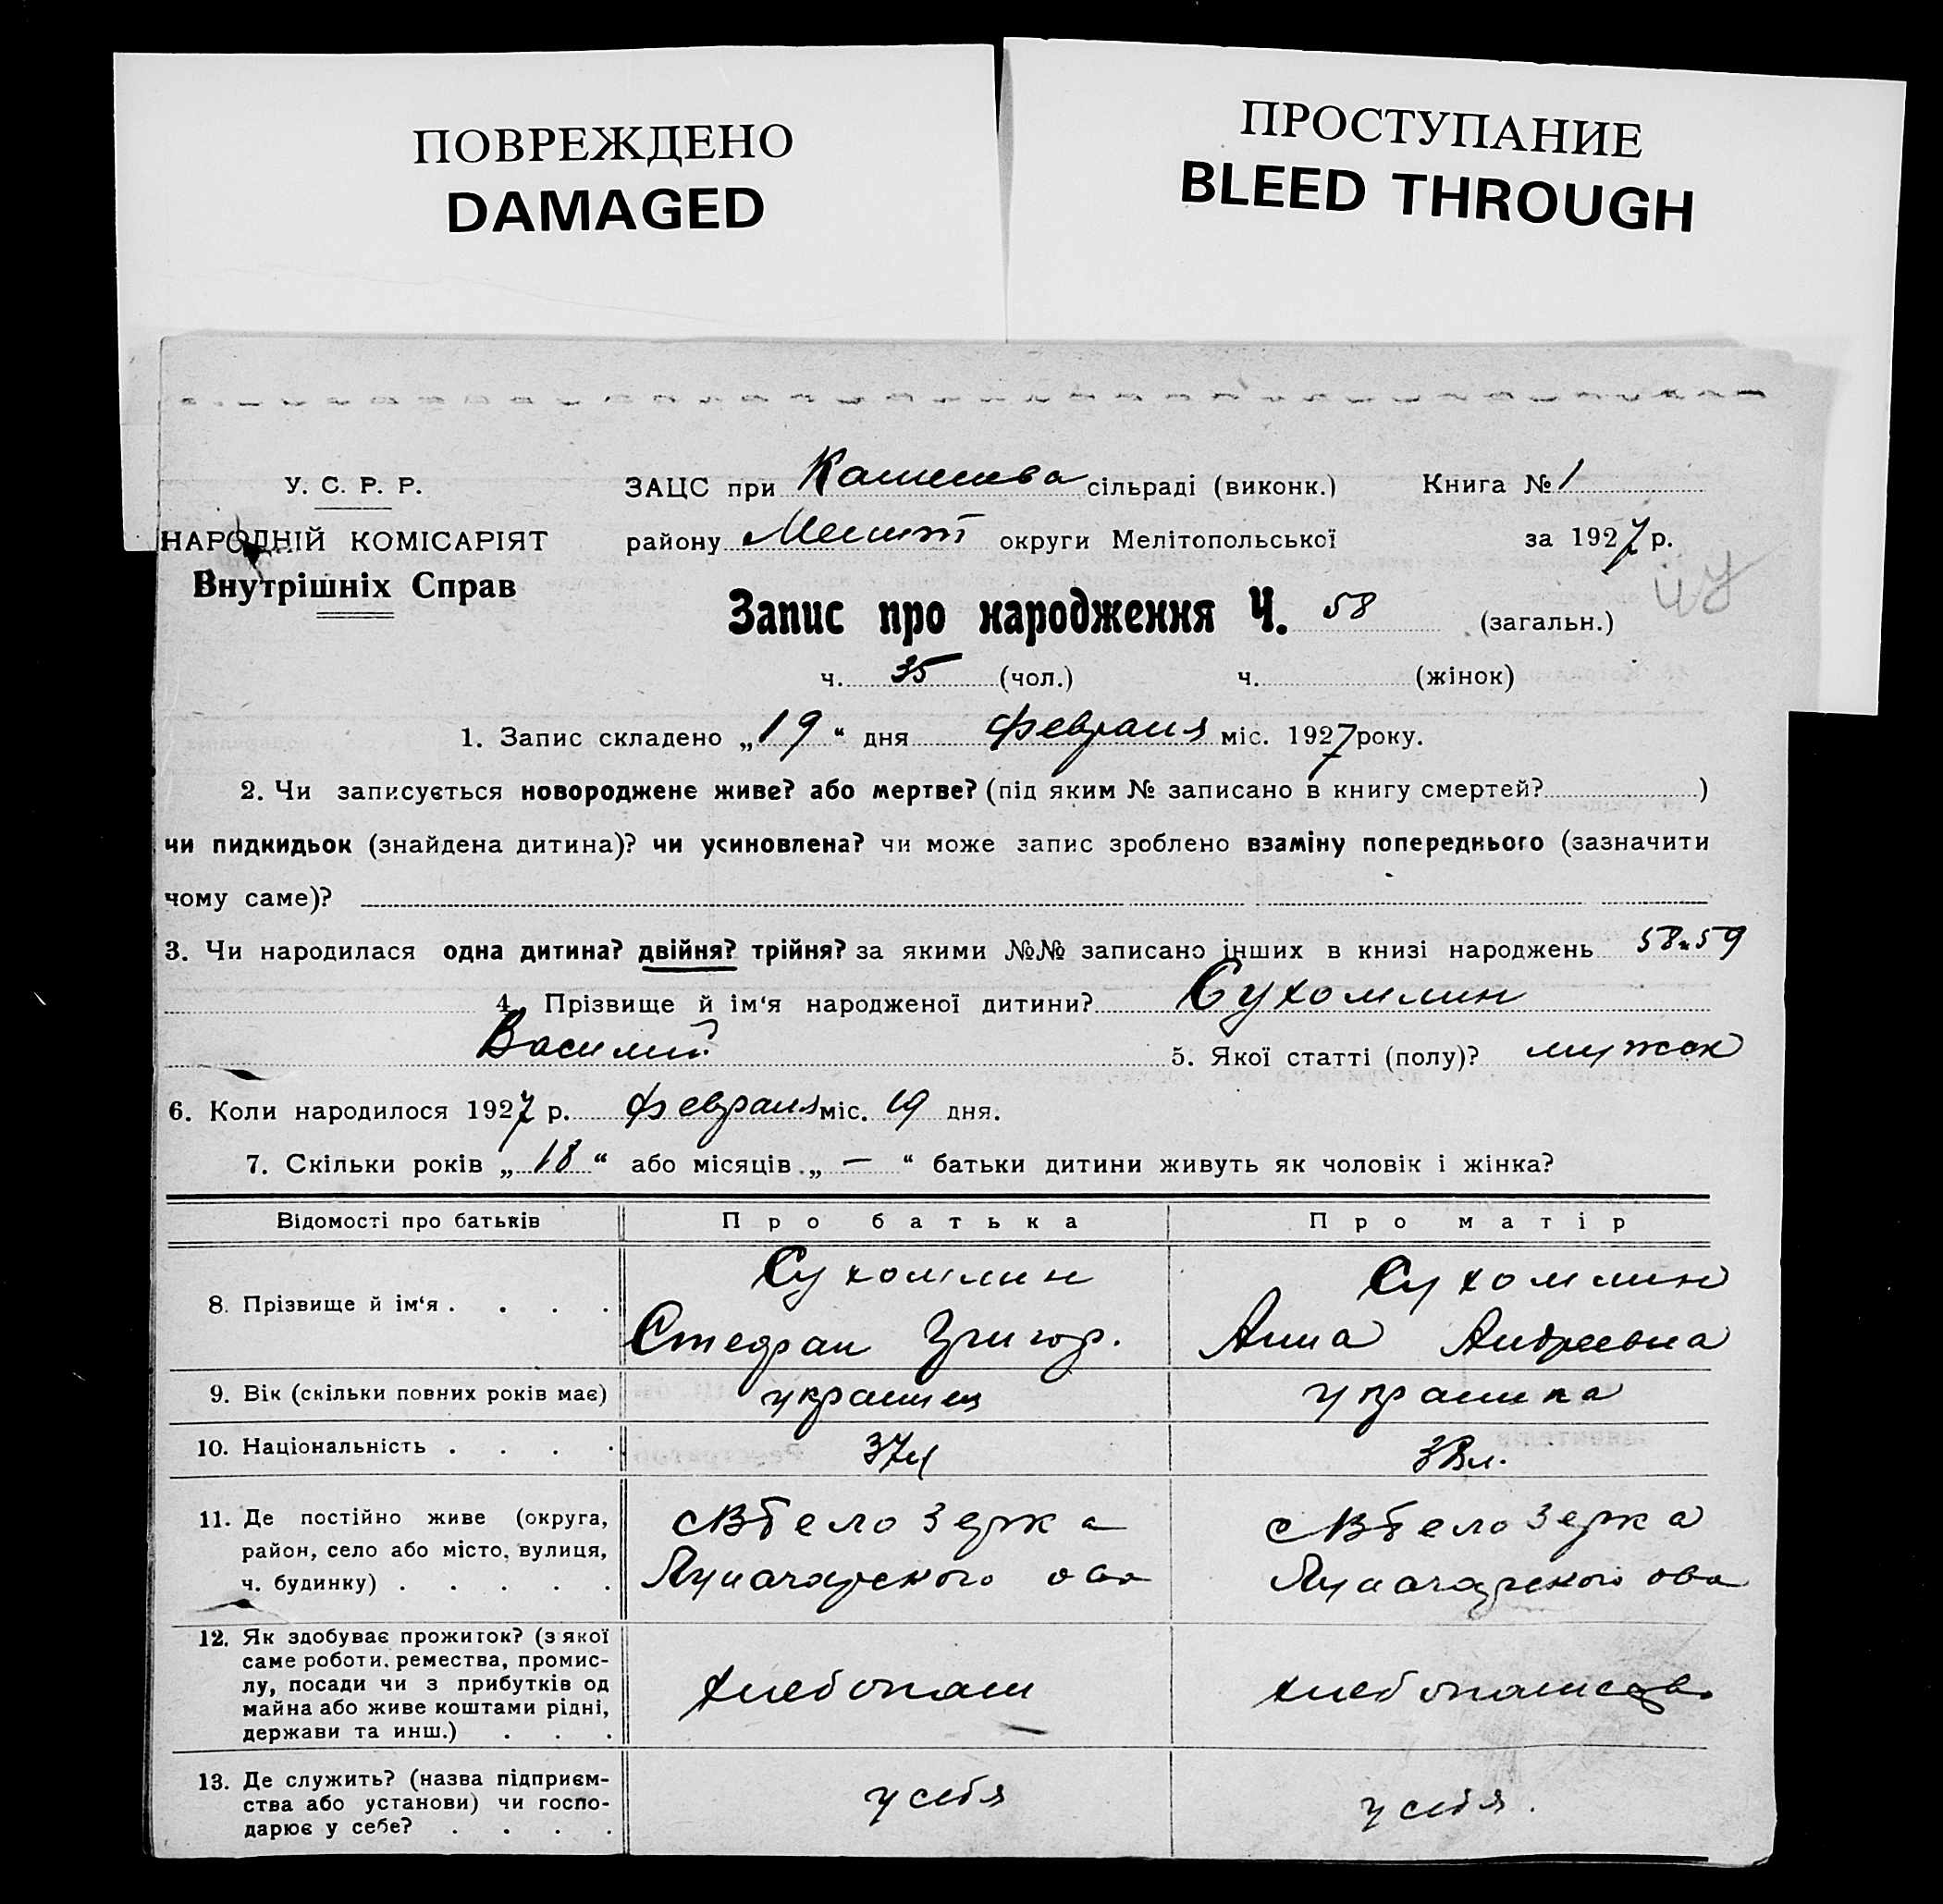 ПОВРЕЖДЕНО
DAMAGED
ПРОСТУПАНИЕ
BLEED THROUGH
У. С. Р. Р.
НАРОДНІЙ КОМІСАРІЯТ
Внутрішніх Справ
ЗАЦС при сільраді (виконк.) Книга № 1
району округи Мелітопольської за 1927 р.
Запис про народження Ч. 58 (загальн.)
ч. 35 (чол.) ч. (жінок)
1. Запис складено „19“ дня февраля міс. 1927 року.
2. Чи записується новороджене живе? або мертве? (під яким № записано в книгу смертей? )
чи пидкидьок (знайдена дитина)? чи усиновлена? чи може запис зроблено взаміну попереднього (зазначити
чому саме)?
3. Чи народилася одна дитина? двійня? трійня? за якими №№ записано інших в книзі народжень 58 и 59
4. Прізвище й ім‘я народженої дитини? Сухомлин
Василий 5. Якої статті (полу)? мужск
6. Коли народилося 1927 р. февраля міс. 19 дня.
7. Скільки років „18“ або місяців „—“ батьки дитини живуть як чоловік і жінка?
Відомості про батьків Про батька Про матір
8. Прізвище й ім‘я . . . . Сухомлин Сухомлин
Стефан Григор. Анна Андреевна
9. Вік (скільки повних років має) украинец украинка
10. Національність . . . . 37 л 38 л.
11. Де постійно живе (округа, район, село або місто, вулиця, ч. будинку) . . . . . с В Белозерка с В Белозерка
Луначарского о-ва Луначарского о-ва
12. Як здобуває прожиток? (з якої саме роботи, ремества, промислу, посади чи з прибутків од майна або живе коштами рідні, держави та инш.) . . . хлебопаш
13. Де служить? (назва підприємства або установи) чи господарює у себе? . . . . у себя у себя.